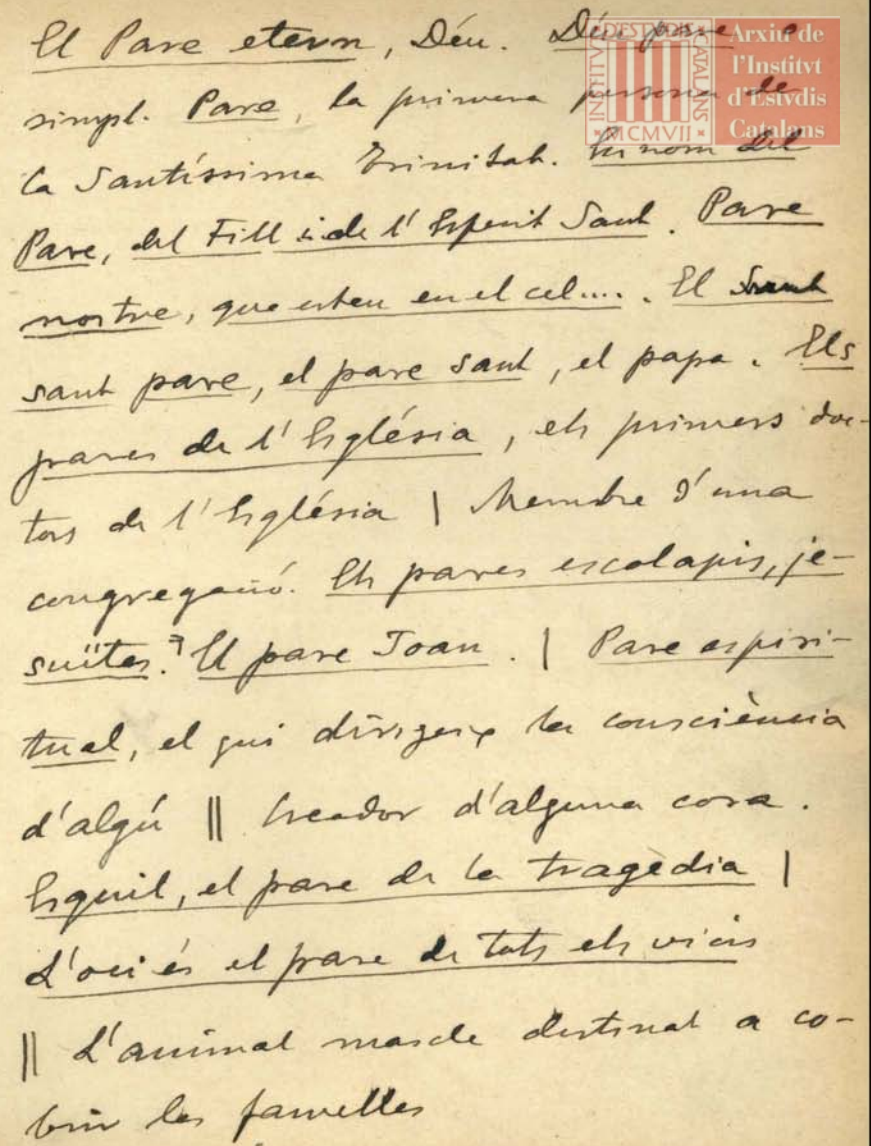 El Pare etern, Déu. Déu pare o
simpl. Pare, la primera persona de
la Santíssima Trinitat. En nom del
Pare, del Fill i de l'Esperit Sant. Pare
nostre, que esteu en el cel.... El
sant pare, el pare sant, el papa. Els
pares de l'Església, els primers doc-
tors de l'Església | Membre d'una
congregació. Els pares escolapis, je-
suïtes. El pare Joan. | Pare espiri-
tual, el qui dirigeix la consciència
d'algú || Creador d'alguna cosa.
Esquil, el pare de la tragèdia |
L'oci és el pare de tots els vicis
|| L'animal mascle destinat a co-
brir les famelles
INSTITVT D'ESTVDIS CATALANS
MCMVII
Arxiu de
l'Institvt
d'Estvdis
Catalans